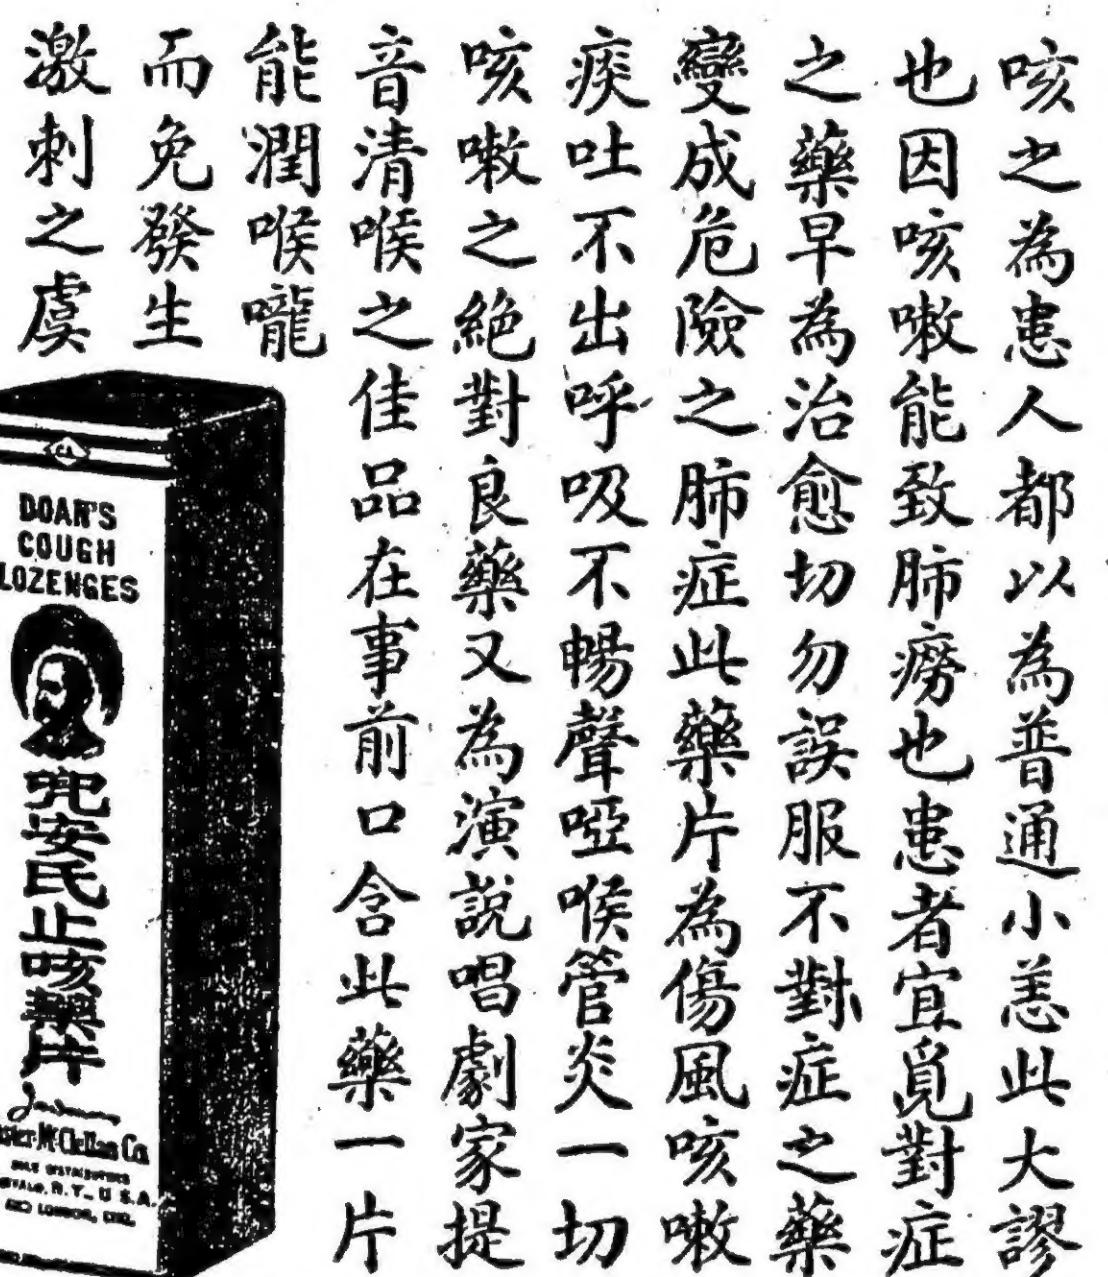 咳之為患人都以為普通小恙此大謬
也因咳嗽能致肺癆也患者宜覓對症
之藥早為治愈切勿誤服不對症之藥
變成危險之肺症此藥片為傷風咳嗽
痰吐不出呼吸不暢聲啞喉管炎一切
咳嗽之絕對良藥又為演說唱劇家提
音清喉之佳品在事前口含此藥一片
能潤喉嚨
而免發生
激刺之虞
DOAN'S
COUGH
LOZENGES
兜安氏止咳藥片
McClellan Co.
SOLE DISTRIBUTORS
N.Y., U.S.A.
AND LONDON, ENG.